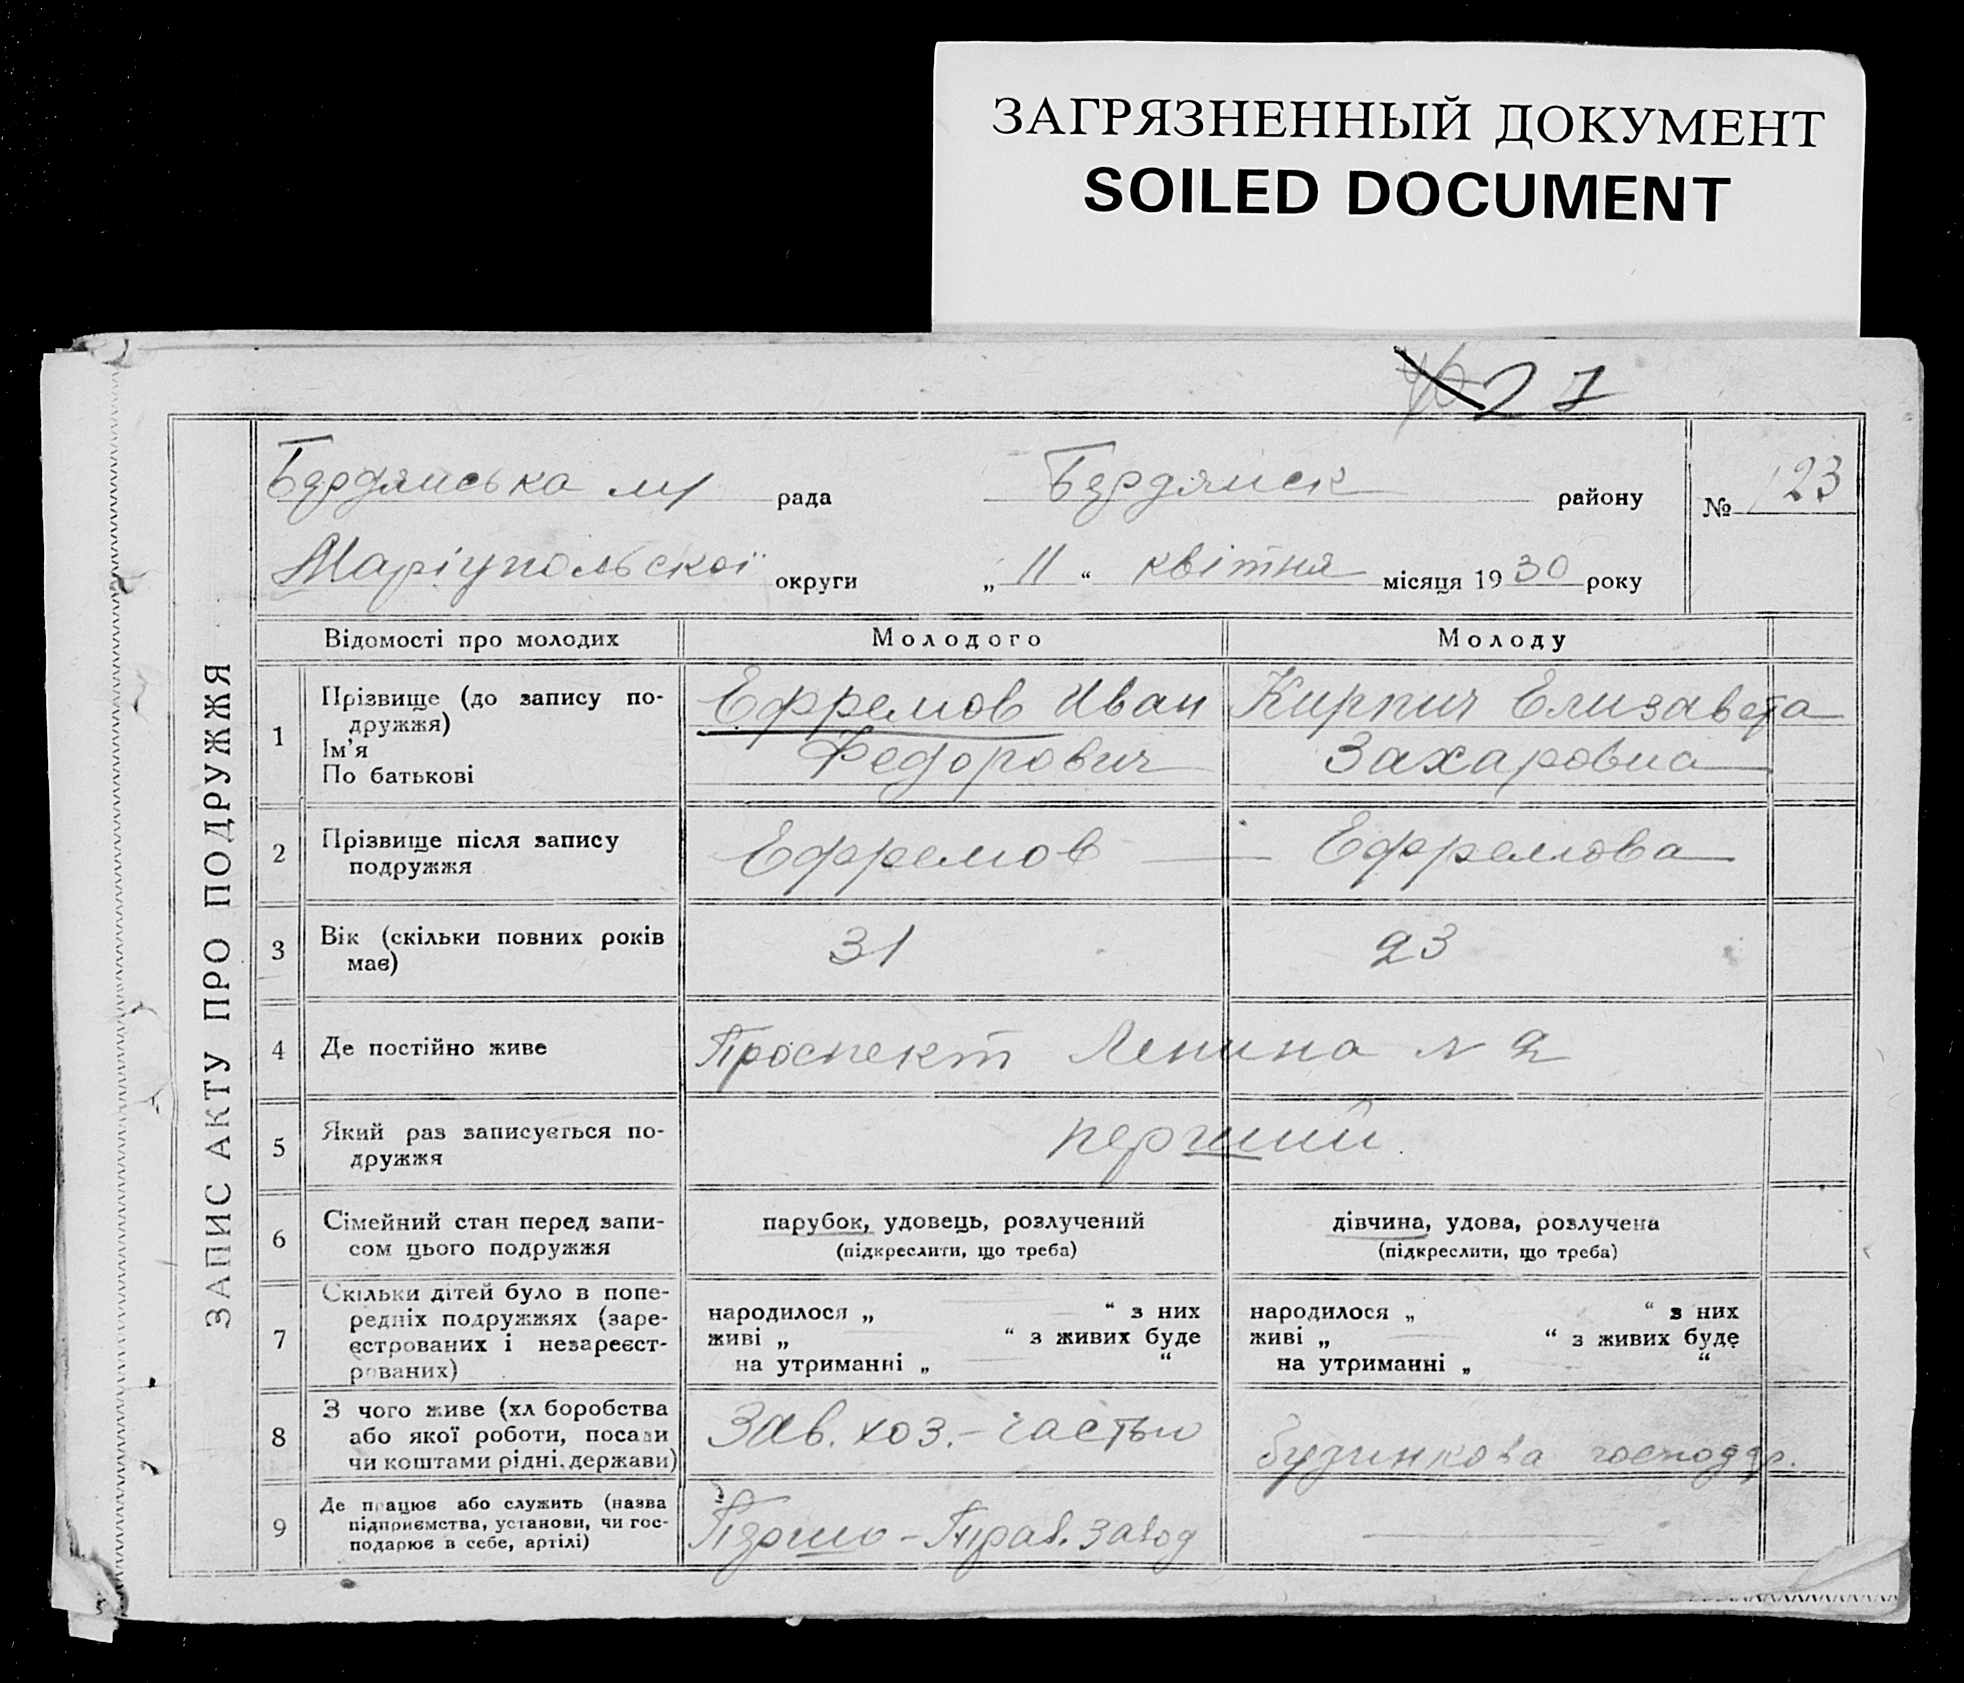 ЗАГРЯЗНЕННЫЙ ДОКУМЕНТ
SOILED DOCUMENT
27
ЗАПИС АКТУ ПРО ПОДРУЖЖЯ
Бердянська м/ рада Бердянск району № 123
Маріупольскої округи „ 11 “ квітня місяця 1930 року
Відомості про молодих Молодого Молоду
1 Прізвище (до запису по-
дружжя)
Ім'я
По батькові
Ефремов Иван
Федорович
Кирпич Елизавета
Захаровна
2 Прізвище після запису
подружжя
Ефремов — Ефремова
3 Вік (скільки повних років
має)
31 23
4 Де постійно живе Проспект Ленина N 2
5 Який раз записується по-
дружжя
перший
6 Сімейний стан перед запи-
сом цього подружжя
парубок, удовець, розлучений
(підкреслити, що треба)
дівчина, удова, розлучена
(підкреслити, що треба)
7 Скільки дітей було в попе-
редніх подружжях (заре-
єстрованих і незареєст-
рованих)
народилося „ “ з них
живі „ “ з живих буде
на утриманні „ “
народилося „ “ з них
живі „ “ з живих буде
на утриманні „ “
8 З чого живе (хліборобства
або якої роботи, посади
чи коштами рідні, держави)
Зав. хоз.-частью
будинкова господар.
9 Де працює або служить (назва
підприємства, установи, чи гос-
подарює в себе, артілі)
Першо-Трав. завод —